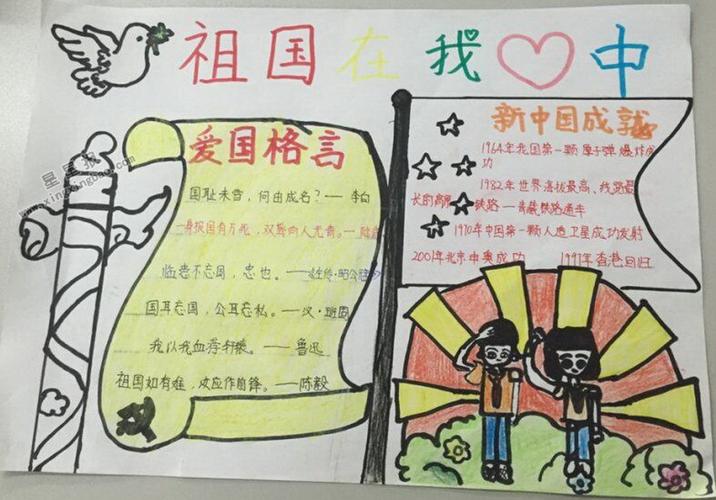 祖国在我♡中
星星报
爱国格言
国耻未雪，何由成名？——李白
一身报国有万死，双鬓向人无青。——陆
临患不忘国，忠也。——左传·昭公
国耳忘国，公耳忘私。——汉·班固
我以我血荐轩辕。——鲁迅
祖国如有难，汝应作前锋。——陈毅
新中国成就
1964年我国第一颗原子弹爆炸成
功
1982年世界海拔最高、线路最
长的高原铁路——青藏铁路通车
1970年中国第一颗人造卫星成功发射
2001年北京申奥成功 1997年香港回归